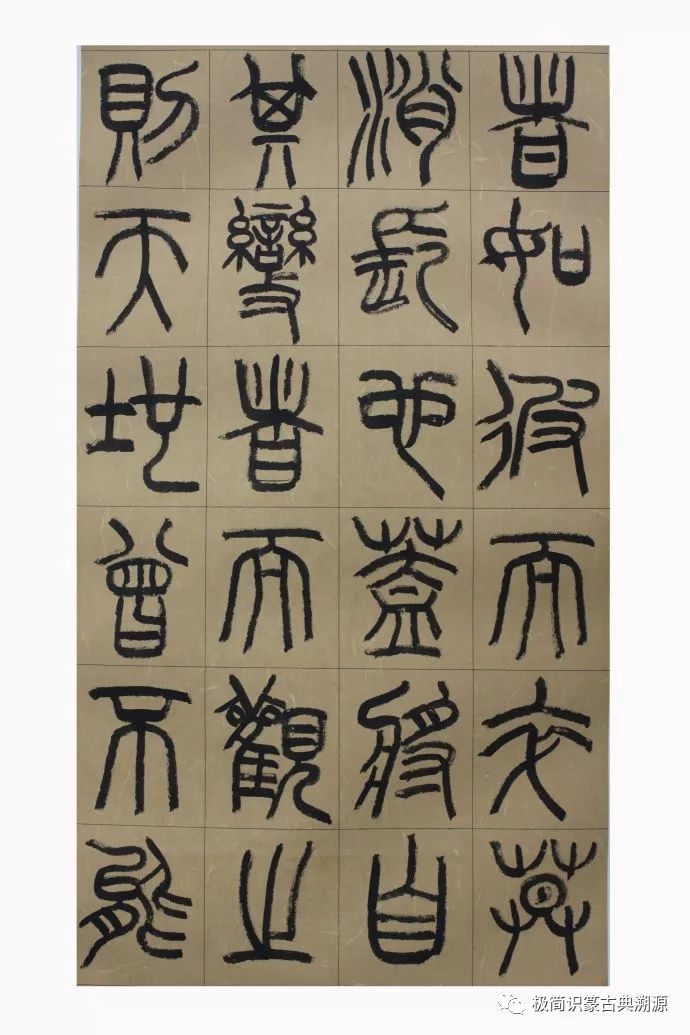 者如彼而卒莫
消長也蓋將自
其變者而觀之
則天地曾不能
极简识篆古典溯源